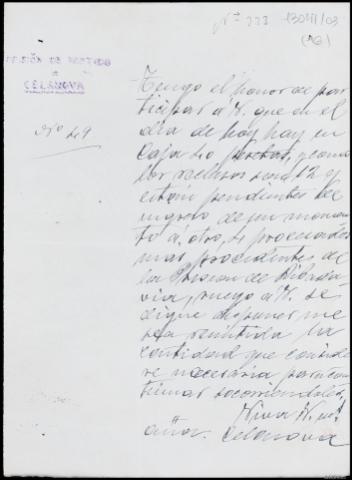 Nº 333 13011/03
(AG)
PRISIÓN DE PARTIDO
DE
CELANOVA
Nº 49
Tengo el honor de par
ticipar á V. que en el
día de hoy hay en
Caja 40 pesetas, y como
los reclusos son 12 y
están pendientes de
ingreso de un momen
to á otro, procesados
mas procedentes de
la Prision de Ribada
via, ruego á V. se
digne disponer me
sea remitida la
cantidad que conside
re necesaria para con
tinuar socorriendoles.
Viva V. m.s
años. Celanova